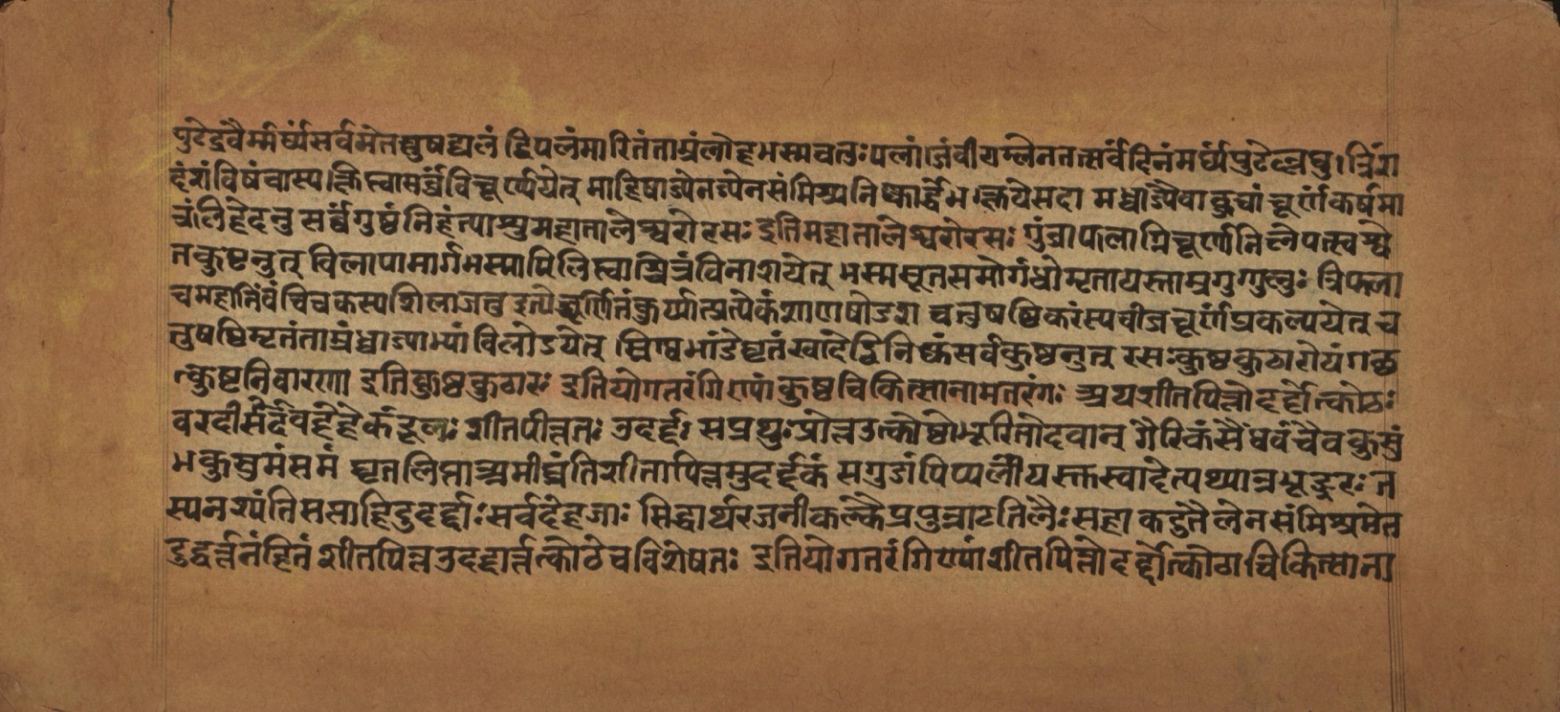 पुटेद्रवैर्म्मर्घ्यसर्वमेतत्सुषद्यलं द्विपलंमारितंताम्रंलोहभस्मचतुःपलां।जंवीराम्लेनतत्सर्वंदिनंमर्घ्यपुटेल्लघु।त्रिंश
दंशंविषंचास्य।क्षिप्त्वासर्व्वंविचूर्ण्णयेत् माहिषाज्येनज्येनसंमिश्र्यनिष्कार्द्धंभ।क्षयेसदा मध्वाज्यैवाकुचां चूर्णंकर्षमा
त्रंलिहेदनु सर्व्वंगुष्ठंनिहंत्याश्रुमहातालेश्वरोरसः इतिमहातालेश्वरोरसः गुंजाफलाग्निचूर्णेनिलेपतस्वश्वे
तकुष्टनुत् विलापामार्गभस्मापिलिप्त्वाश्वित्रंविनाशयेत् भस्मसूतसमोगंधोमृतायस्ताम्रगुग्गुलुः त्रिफला
चमहानिंवंचित्रकस्यशिलाजतु इत्येच्चूर्णितंकुर्य्यात्प्रत्येकंशाणषोडश चतुषष्ठिकरंस्यवीजचूर्णंप्रकल्पयेत् च
तुषष्ठिमृतंताम्रंध्वाज्याभ्यांविलोडयेत् स्निग्धभांडेघृतंखादेद्विनिष्कंसर्वकुष्ठनुत् रसःकुष्ठकुठारोयंगछ
त्कुष्टनिवारणा इतिकुष्ठकुठारः इतियोगतरंगिण्यांकुष्ठचिकित्सानामतरंगः अथशीतपित्तोदर्द्दोत्कोठः
वरदीसंर्दवहेहेकंडूलः शीतपीत्ततः उदर्द्दः सप्रथुःप्रोक्तउत्कोष्ठोभूरितोदवान् गैरिकंसैंधवंचैवकुसुं
भकुसुमंसमं घृतलिप्ताअमीघ्नंतिशीतापित्तमुदर्द्दकं सगुडांपिप्पलींयस्तस्वादेत्पथ्यान्नभूङ्नरः त
स्यनश्यंतिसप्ताहिदुदर्द्दाःसर्वदेहजाः सिद्धार्थरजनीकल्कैप्रपुन्नाटतिलैःसहा कटुतैलेनसंमिश्रमेत
दुद्वर्त्तनंहितं शीतपित्तउदद्दार्त्तत्कोठेचविशेषतः इतियोगतरंगिण्यांशीतपित्तोदर्द्दोत्कोठाचिकित्साना